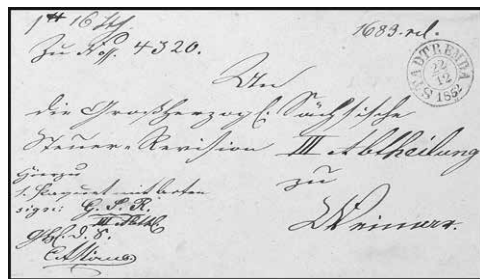 1 ℔ 16 Lth.
Zu No. 4320.
1683. rel.
STADTREMDA
22/12
1852
An
die Großherzogl. Sächsische
Steuer-Revision III Abtheilung
zu
Weimar.
Hierzu
1 Paquet mit
sign: G. S. R.
III Abthl.